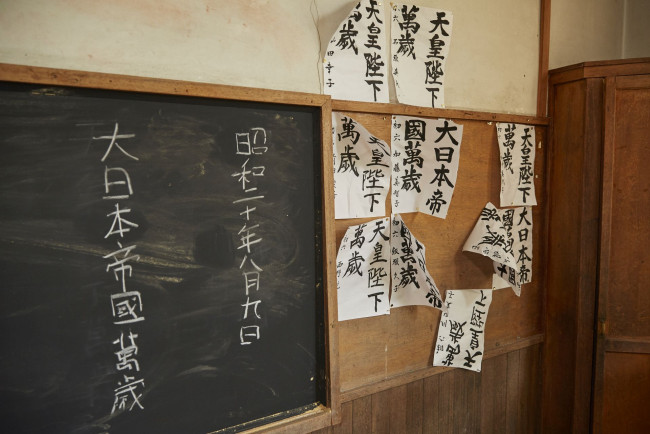 昭和二十年八月九日
大日本帝國萬歳
天皇陛下
萬歳
天皇陛下
萬歳
初六
大日本帝
國萬歳
初六 加藤美智子
天皇陛下
萬歳
天皇陛下
萬歳
天皇陛下
萬歳
萬歳
初六
大日本帝
國
天皇
萬歳